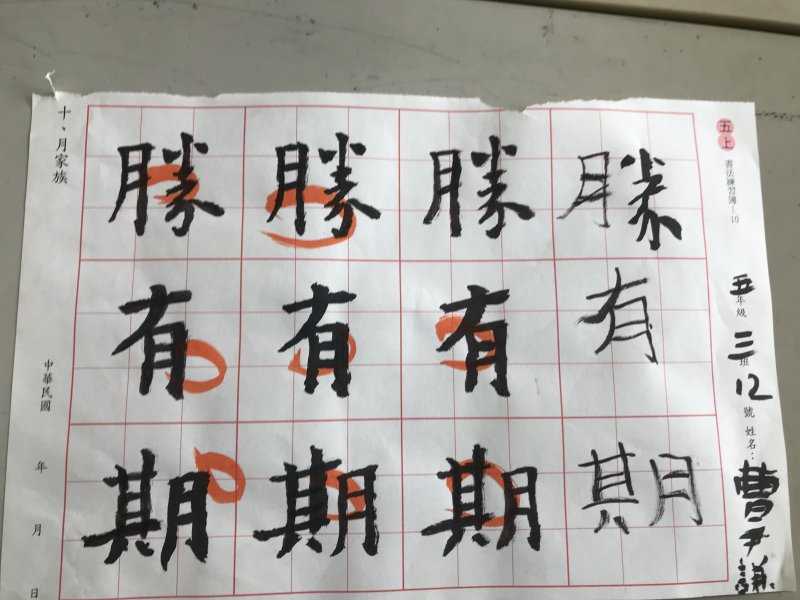 五上
書法練習簿—10
五年級三班12號姓名：曹尹議
勝有期
勝有期
勝有期
勝有期
十、月家族
中華民國年月日